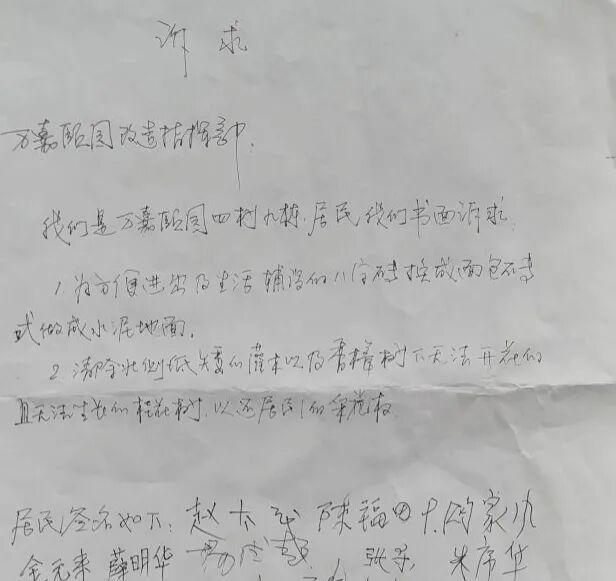 诉求
万嘉颐园改造指挥部
我们是万嘉颐园四村九栋居民 我们书面诉求
1. 为方便进出及生活 铺设的八字砖换成面包砖
或做成水泥地面.
2. 清除北侧低矮的灌木以及香樟树下无法开花的
且无法生长的桂花树. 以还居民们的
居民签名如下: 赵 陈福田 家
金元来 薛明华 华